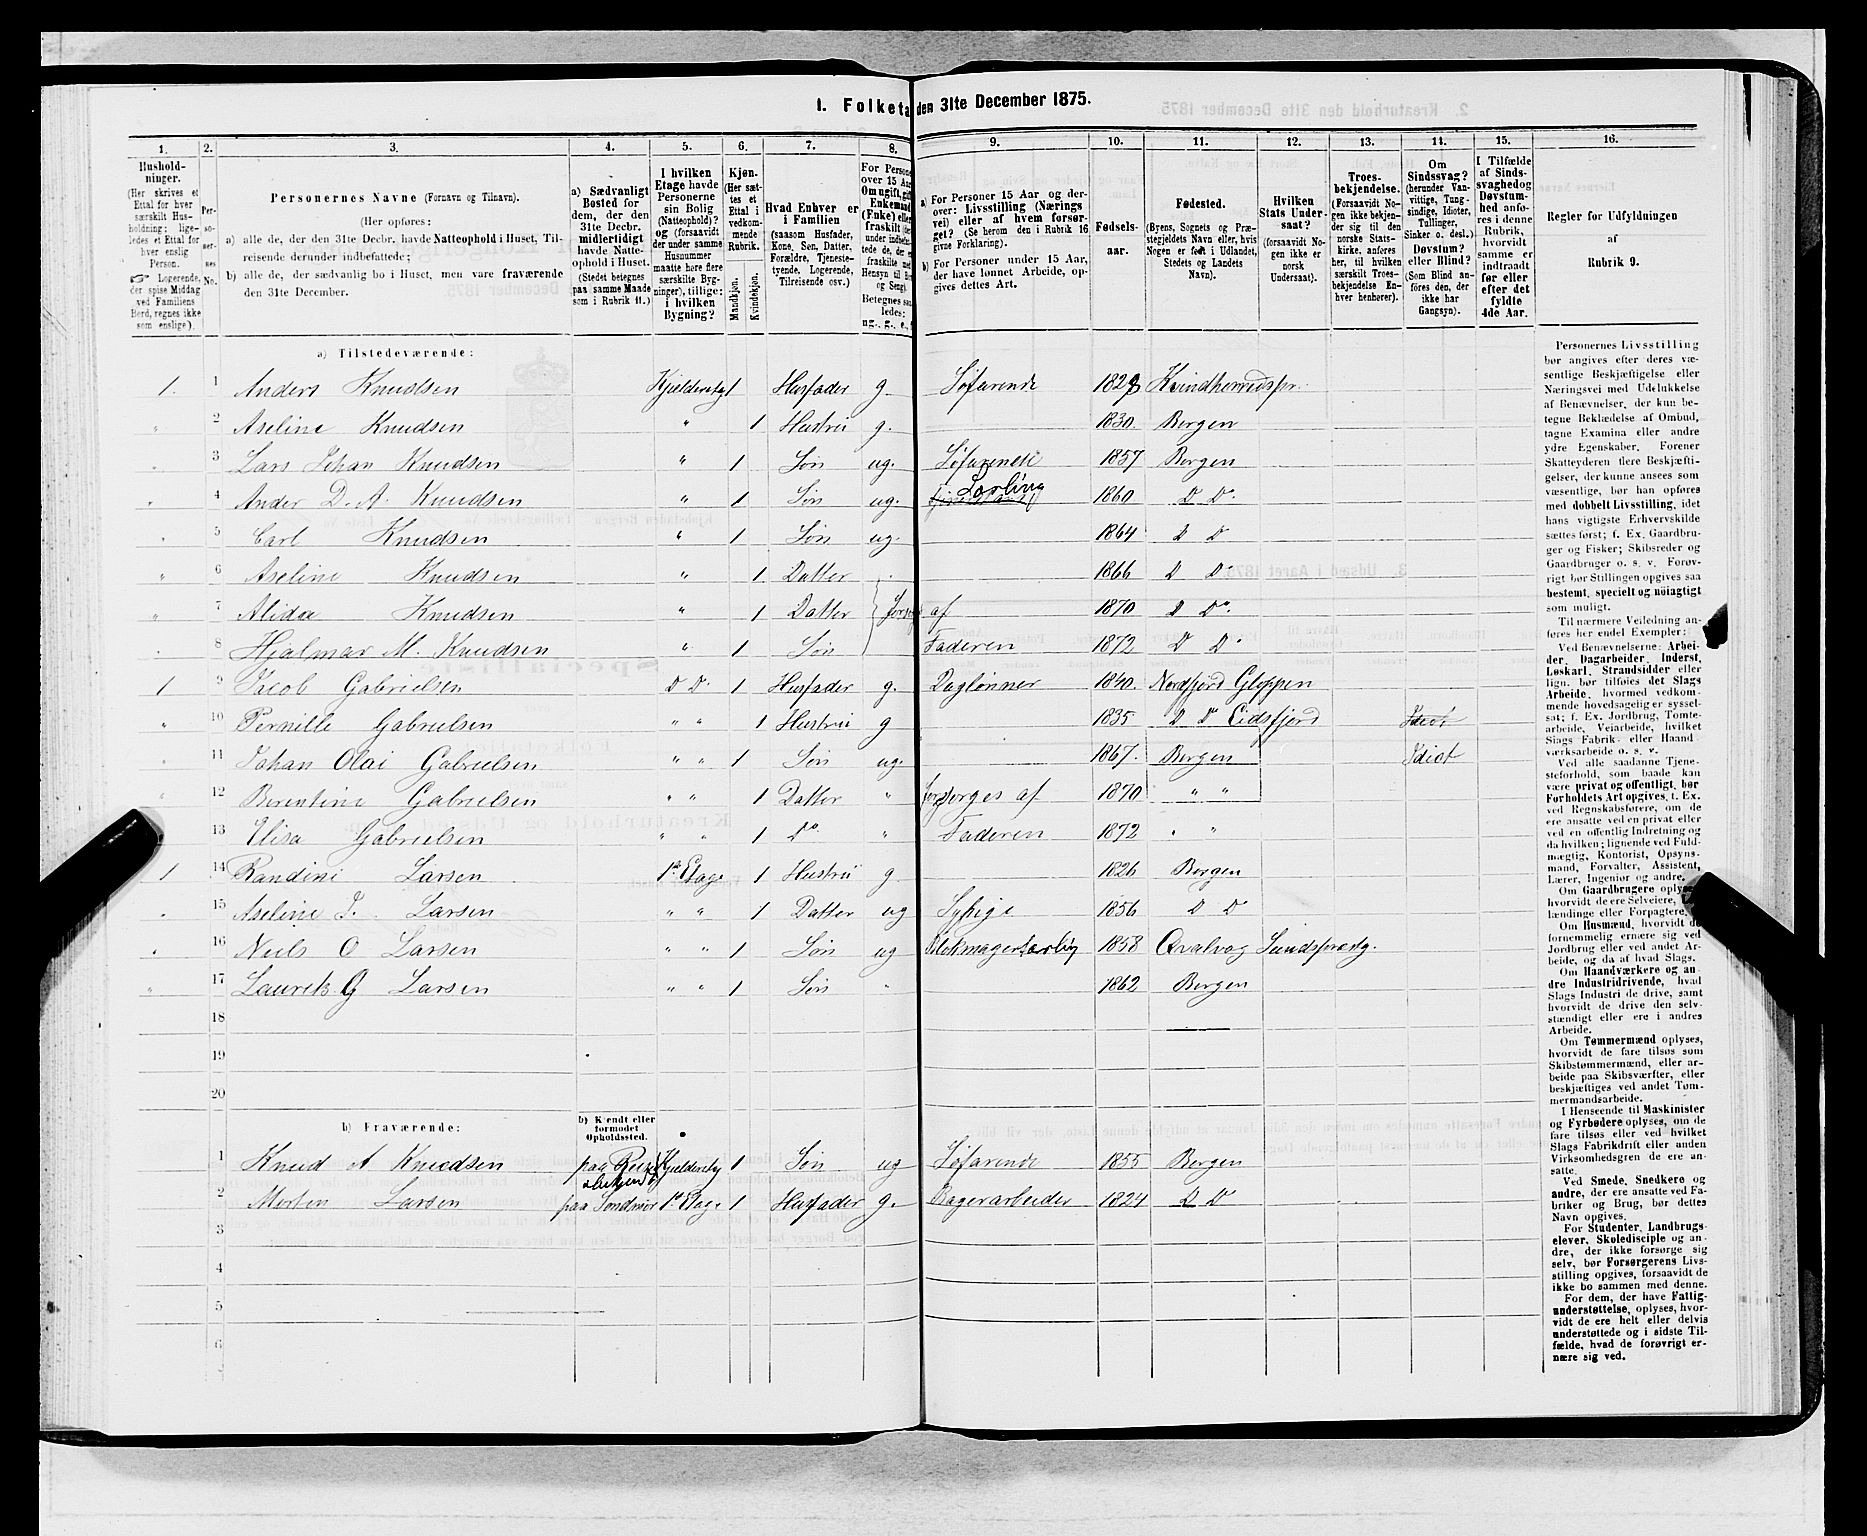 1. Folketa den 31te December 1875.
1. 2. 3. 4. 5. 6. 7. 8. 9. 10. 11. 12. 13. 14. 15. 16.
Hushold-
ninger.
(Her skrives et
Ettal for hver
særskilt Hus-
holdning; lige-
ledes et Ettal for
hver enslig
Person.
Logerende,
der spise Middag
ved Familiens
Bord, regnes ikke
som enslige).
Per-
so-
ner-
nes
No.
Personernes Navne (Fornavn og Tilnavn).
(Her opføres:
a) alle de, der den 31te Decbr. havde Natteophold i Huset, Til-
reisende derunder indbefattede;
b) alle de, der sædvanlig bo i Huset, men vare fraværende
den 31te December.
a) Sædvanligt
Bosted for
dem, der den
31te Decbr.
midlertidigt
havde Natte-
ophold i Huset.
(Stedet betegnes
paa samme Maade
som i Rubrik 11.)
I hvilken
Etage havde
Personerne
sin Bolig
(Natteophold)?
og (forsaavidt
der under samme
Husnummer
maatte høre flere
særskilte Byg-
ninger), tillige:
i hvilken
Bygning?
Kjøn.
(Her sæt-
tes et
Ettal i
vedkom-
mende
Rubrik.
Mandkjøn.
Kvindekjøn.
Hvad Enhver er
i Familien
(saasom Husfader,
Kone, Søn, Datter,
Forældre, Tjeneste-
tyende, Logerende,
Tilreisende osv.)
For Persone
over 15 Aa
Om ugift, gift
Enkemand
(Enke) elle
fraskilt (de
under indbefat-
tede de, der e
fraskilte med
Hensyn til Bo
og Seng).
Betegnes saa
ledes:
ug., g., e.,
a) For Personer 15 Aar og der-
over: Livsstilling (Nærings
vei) eller af hvem forsør-
get? (Se herom den i Rubrik 16
givne Forklaring).
b) For Personer under 15 Aar,
der have lønnet Arbeide, op-
gives dettes Art.
Fødsels-
aar.
Fødested.
(Byens, Sognets og Præ-
stegjeldets Navn eller, hvis
Nogen er født i Udlandet,
Stedets og Landets
Navn).
Hvilken
Stats Under-
saat?
(forsaavidt No-
gen ikke er
norsk
Undersaat).
Troes-
bekjendelse.
(Forsaavidt No-
gen ikke bekjen-
der sig til den
norske Stats-
kirke, anføres
her, til hvilken
særskilt Troes-
bekjendelse En-
hver henhører).
Om
Sindssvag?
(herunder Van-
vittige, Tung-
sindige, Idioter,
Tullinger,
Sinker o. desl.)
Døvstum?
eller Blind?
(Som Blind an-
føres den, der
ikke har
Gangsyn).
I Tilfælde
af Sinds-
svaghed og
Døvstum-
hed anfø-
res i denne
Rubrik,
hvorvidt
samme er
indtraadt
før eller
efter det
fyldte
4de Aar.
Regler for Udfyldningen
af
Rubrik 9.
a) Tilstedeværende:
1. 1 Anders Knudsen Kjelderetag 1 Husfader g. Søfarende 1828 Kvindherredspr.
" 2 Aseline Knudsen " 1 Hustru g. 1830. Bergen
" 3 Lars Johan Knudsen " 1 Søn ug. Søfarende 1857 Bergen
" 4 Ander D. A. Knudsen " 1 Søn ug. Lærling 1860 D D°
" 5 Carl Knudsen " 1 Søn ug. 1864 D D
" 6 Aseline Knudsen " 1 Datter 1866 D D
" 7 Alida Knudsen " 1 Datter forsørges af 1870 D D°.
" 8 Hjalmar M. Knudsen " 1 Søn Faderen 1872 D D
1 9 Jacob Gabrielsen D D 1 Husfader g. Daglønner 1840. Nordfjord Gloppen
" 10 Pernille Gabrielsen " " 1 Hustru g 1835 D D° Eidsfjord Idiot
" 11 Johan Olai Gabrielsen " " 1 Søn ug. 1867. Bergen Idiot
" 12 Berentine Gabrielsen " " 1 Datter " forsørges af 1870 " "
" 13 Elisa Gabrielsen " " 1 D° " Faderen 1872 " "
1 14 Randine Larsen 1ste Etage 1 Hustru g 1826 Bergen
" 15 Aseline J. Larsen " " 1 Datter ug Sypige 1856 D D
" 16 Niels O Larsen " " 1 Søn ug Blokmagerlærling 1858 Qvalvog Sundsprestg.
" 17 Laurits G Larsen " " 1 Søn " 1862 Bergen
18
19
20
b) Fraværende:
b) Kjendt eller
formodet
Opholdssted.
1 Knud A Knudsen paa Reise Kjelderetg 1 Søn ug Søfarende 1855 Bergen
2 Morten Larsen paa Søndmør 1ste Etage 1 Husfader g. Bagerarbeider 1824 D D
3
4
5
6
7
Personernes Livsstilling
bør angives efter deres væ-
sentlige Beskjæftigelse eller
Næringsvei med Udelukkelse
af Benævnelser, der kun be-
tegne Beklædelse af Ombud,
tagne Examina eller andre
ydre Egenskaber. Forener
Skatteyderen flere Beskjæfti-
gelser, der kunne ansees som
væsentlige, bør han opføres
med dobbelt Livsstilling, idet
hans vigtigste Erhvervskilde
sættes først; f. Ex. Gaardbru-
ger og Fisker; Skibsreder og
Gaardbruger o. s. v. Forøv-
rigt bør Stillingen opgives saa
bestemt, specielt og nøiagtigt
som muligt.
Til nærmere Veiledning an-
føres her endel Exempler:
Ved Benævnelserne: Arbei-
der, Dagarbeider, Inderst,
Løskarl, Strandsidder eller
lign. bør tilføies det Slags
Arbeide, hvormed vedkom-
mende hovedsagelig er syssel-
sat; f. Ex. Jordbrug, Tomte-
arbeide, Veiarbeide, hvilket
Slags Fabrik- eller Haand-
værksarbeide o. s. v.
Ved alle saadanne Tjene-
steforhold, som baade kan
være privat og offentligt, bør
Forholdets Art opgives, f. Ex.
ved Regnskabsførere, om de
ere ansatte ved en privat eller
ved en offentlig Indretning og
da hvilken; lignende ved Fuld-
mægtig, Kontorist, Opsyns-
mand, Forvalter, Assistent,
Lærer, Ingeniør og andre.
Om Gaardbrugere oplyses,
hvorvidt de ere Selveiere,
lændinge eller Forpagtere.
Om Husmænd, hvorvidt de
fornemmelig ernære sig ved
Jordbrug eller ved andet Ar-
beide, og da af hvad Slags.
Om Haandværkere og an-
dre Industridrivende, hvad
Slags Industri de drive, samt
hvorvidt de drive den selv-
stændigt eller ere i andres
Arbeide.
Om Tømmermænd oplyses,
hvorvidt de fare tilsøs som
Skibstømmermænd, eller ar-
beide paa Skibsværfter, eller
beskjæftiges ved andet Tøm-
mermandsarbeide.
I Henseende til Maskinister
og Fyrbødere oplyses, om de
fare tilsøs eller ved hvilket
Slags Fabrikdrift eller anden
Virksomhedsgren de ere an-
satte.
Ved Smede, Snedkere og
andre, der ere ansatte ved Fa-
briker og Brug, bør dettes
Navn opgives.
For Studenter, Landbrugs-
elever, Skoledisciple og an-
dre, der ikke forsørge sig
selv, bør Forsørgerens Livs-
stilling opgives, forsaavidt de
ikke bo sammen med denne.
For dem, der have Fattig-
understøttelse, oplyses, hvor-
vidt de ere helt eller delvis
understøttede og i sidste Til-
fælde, hvad de forøvrigt er-
nære sig ved.